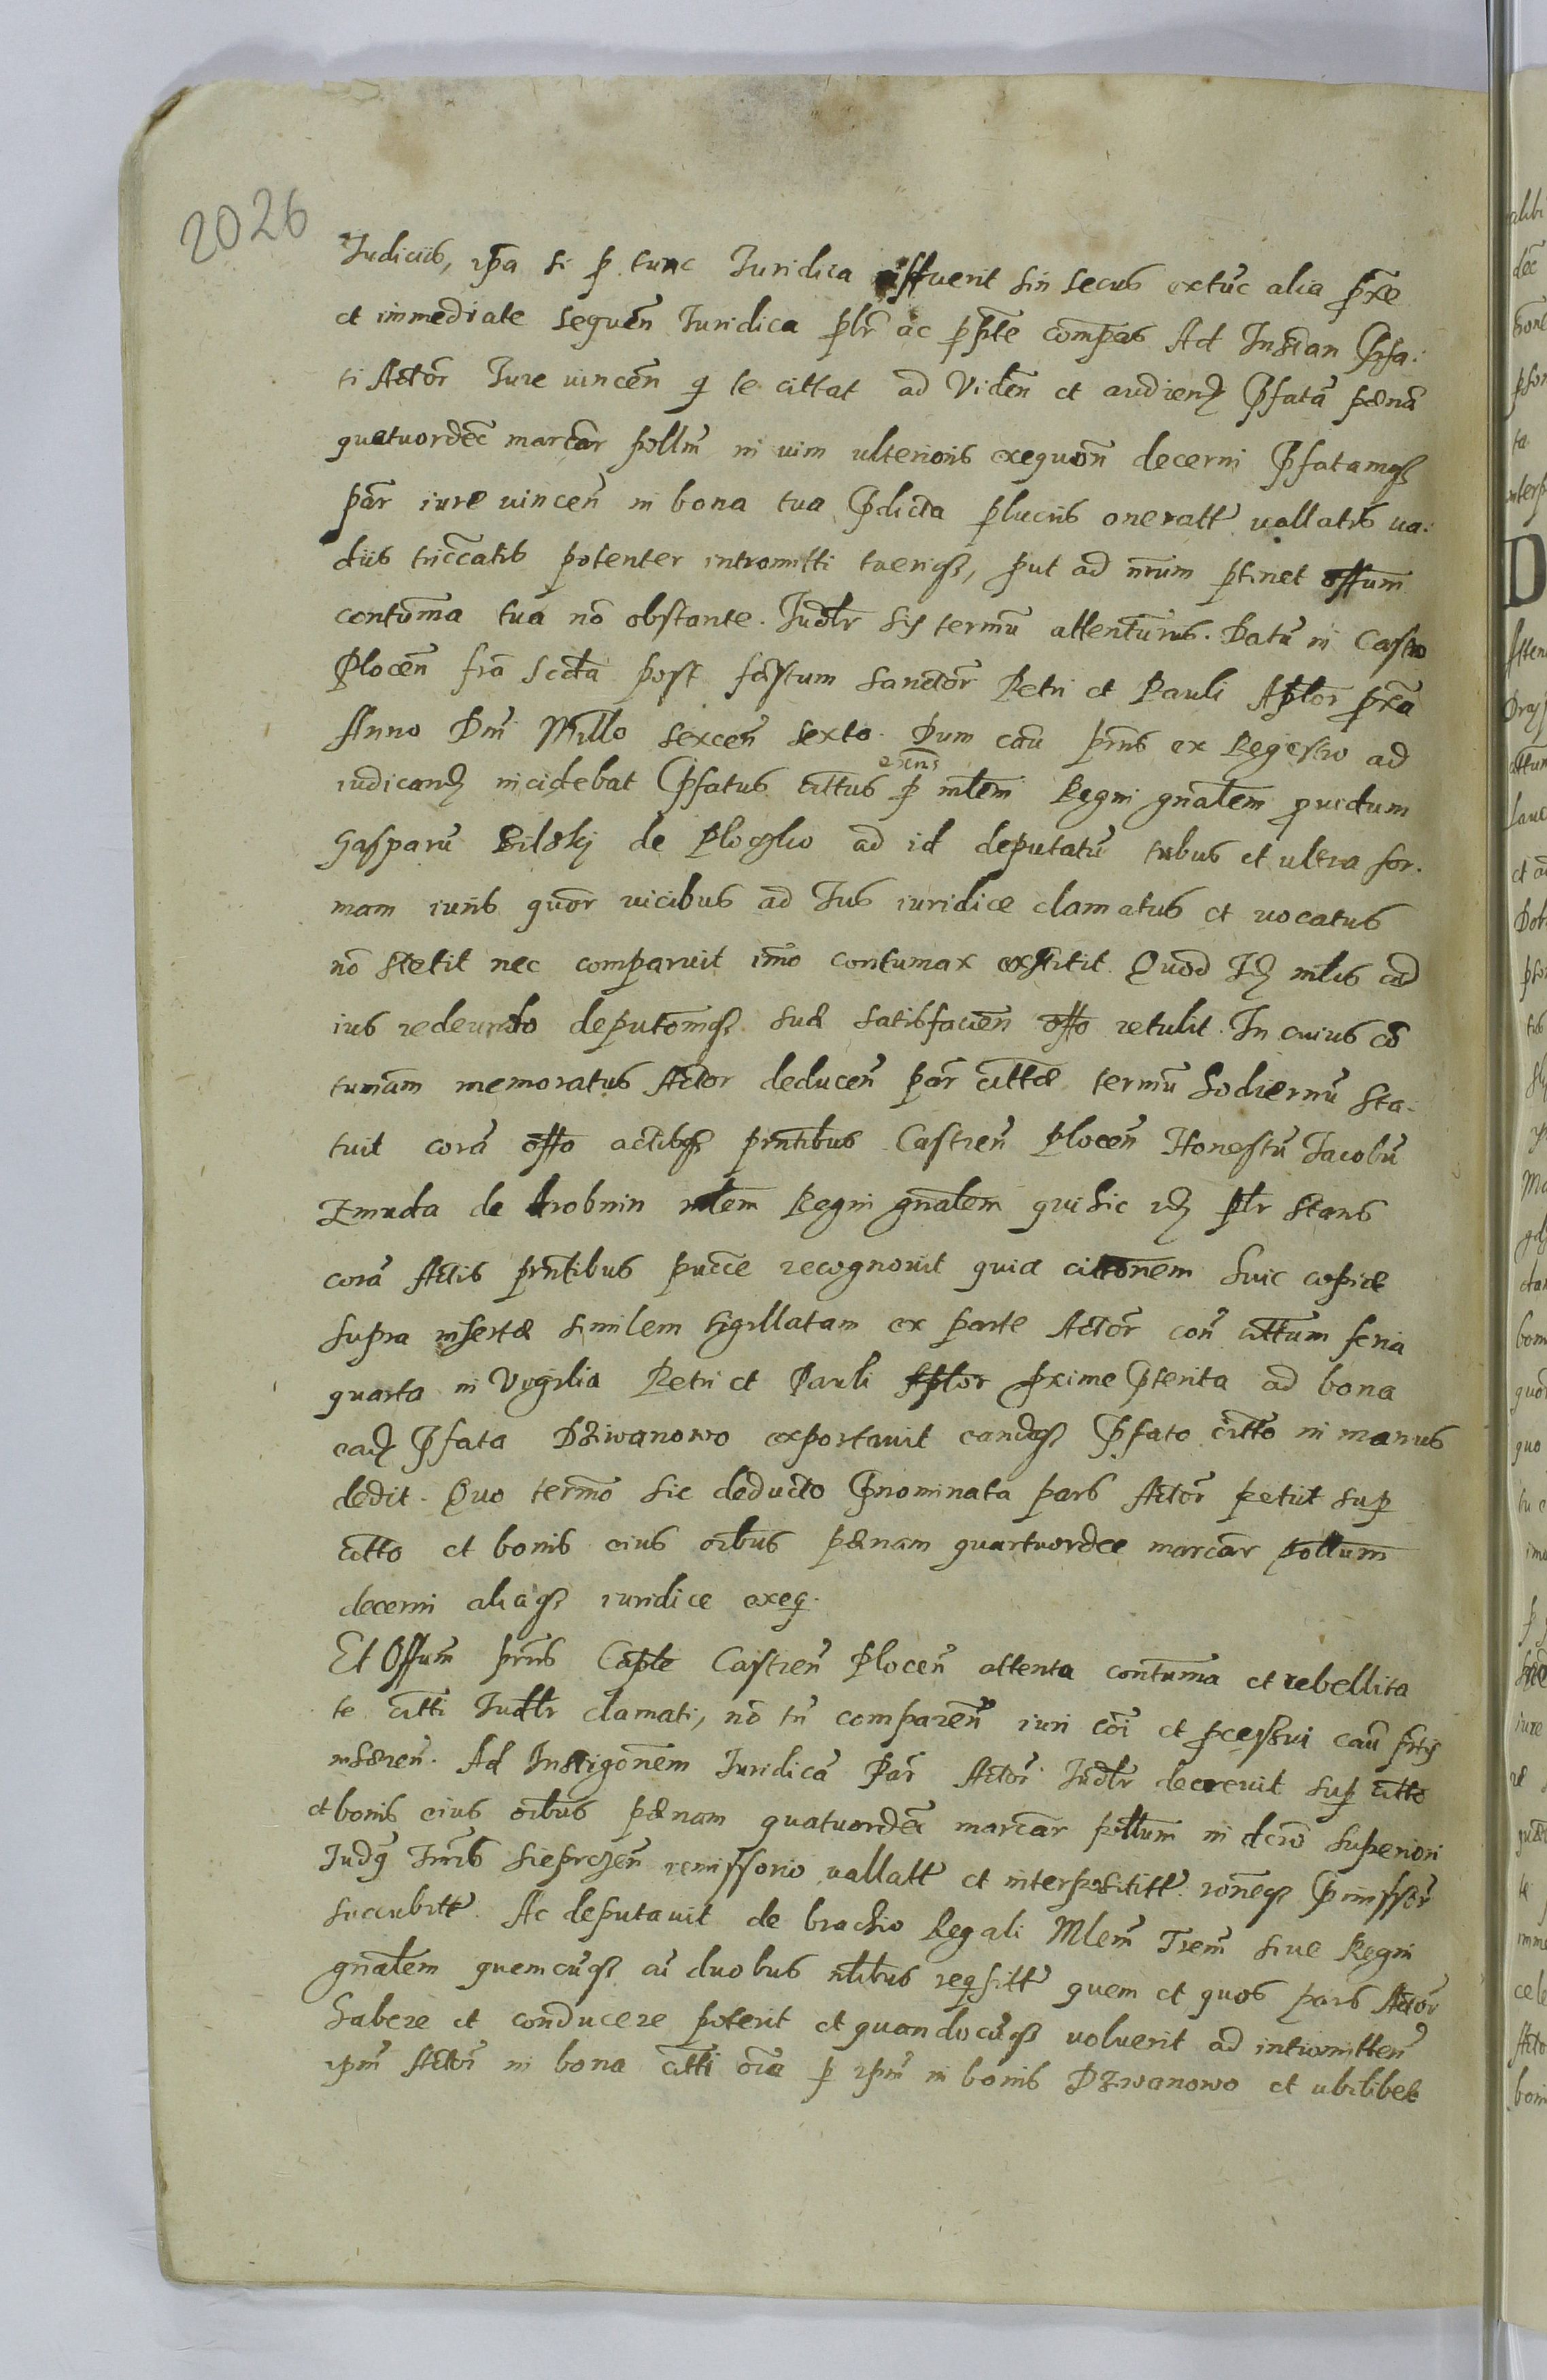 2026
Judiciis, ipa si p tunc Juridica affuerit sin secus extuc alia pxe
et immediate sequen Juridica plr ac pptle compas Ad Instian Pfa:
ti Actor Jure vincen q te cittat ad Viden et audiend Pfata pæna
quatuordec marcar pollm in vim ulterioris exequon decerni Pfatamq
par iure vincen in bona tua Pdicta plucris oneratt vallatis va:
diis triccatis potenter intromitti tueriq, put ad nrum ptinet offum
contuma tua no obstante. Judlr sis termu attenturus. Datu in Castro
Plocen fra Scda post festum Sanctor Petri et Pauli Aplor pxa
Anno Dni Millo sexcen sexto. Dum cau prns ex Regestro ad
iudicand incidebat Pfatus cittus p mlem Regni gnalem pvidum
Gasparu Bilski de Plo ad id deputatu tribus et ultra for.
mam iuris quor vicibus ad Jus iuridice clamatus et vocatus
no stetit nec comparuit imo contumax exstitit. Quod Id mlis ad
ius redeundo deputoniq suæ satisfacien offo retulit. In cuius co
tumam memoratus Actor deducen par cittæ termu hodiernu sta:
tuit cora offo actibq prntibus Castren Plocen Honestu Jacobu
Zmuda de Drobnin mlem Regni gnalem qui hic id plr stans
cora Actis prntibus pucce recognovit quia cittonem huic copiæ
supra insertæ similem sigillatam ex parte Actor con cittum feria
quarta in Vigilia Petri et Pauli Aplor pxime Pterita ad bona
ead Pfata Dziwanowo exportavit eandq Pfato citto in manus
dedit. Quo termo sic deducto Pnominata pars Actor petiit sup
citto et bonis eius oibus pænam quartuordec marcar pollum
decerni aliaq iuridice exeq.
Et Offum prns Caple Castren Plocen attenta contuma et rebellita
te citti Judlr clamati, no tn comparen iuri coi et pcessui cau
inhæren. Ad Instigonem Juridica Par Actor Judlr decrevit sup citto
et bonis eius oibus pænam quatuordec marcar pollum in dcio superiori
Judq Trris Sieprczen remissorio vallatt et interposititt roneq Pmissor
succubitt. Ac deputavit de brachio Regali Mlem Trem sive Regni
gnalem quemcuq cu duobus nlibus reqsitt quem et quos pars Actor
habere et conducere poterit et quandocuq voluerit ad intromitten
ipm Actor in bona citti oia p ipm in bonis Dziwanowo et ubilibet